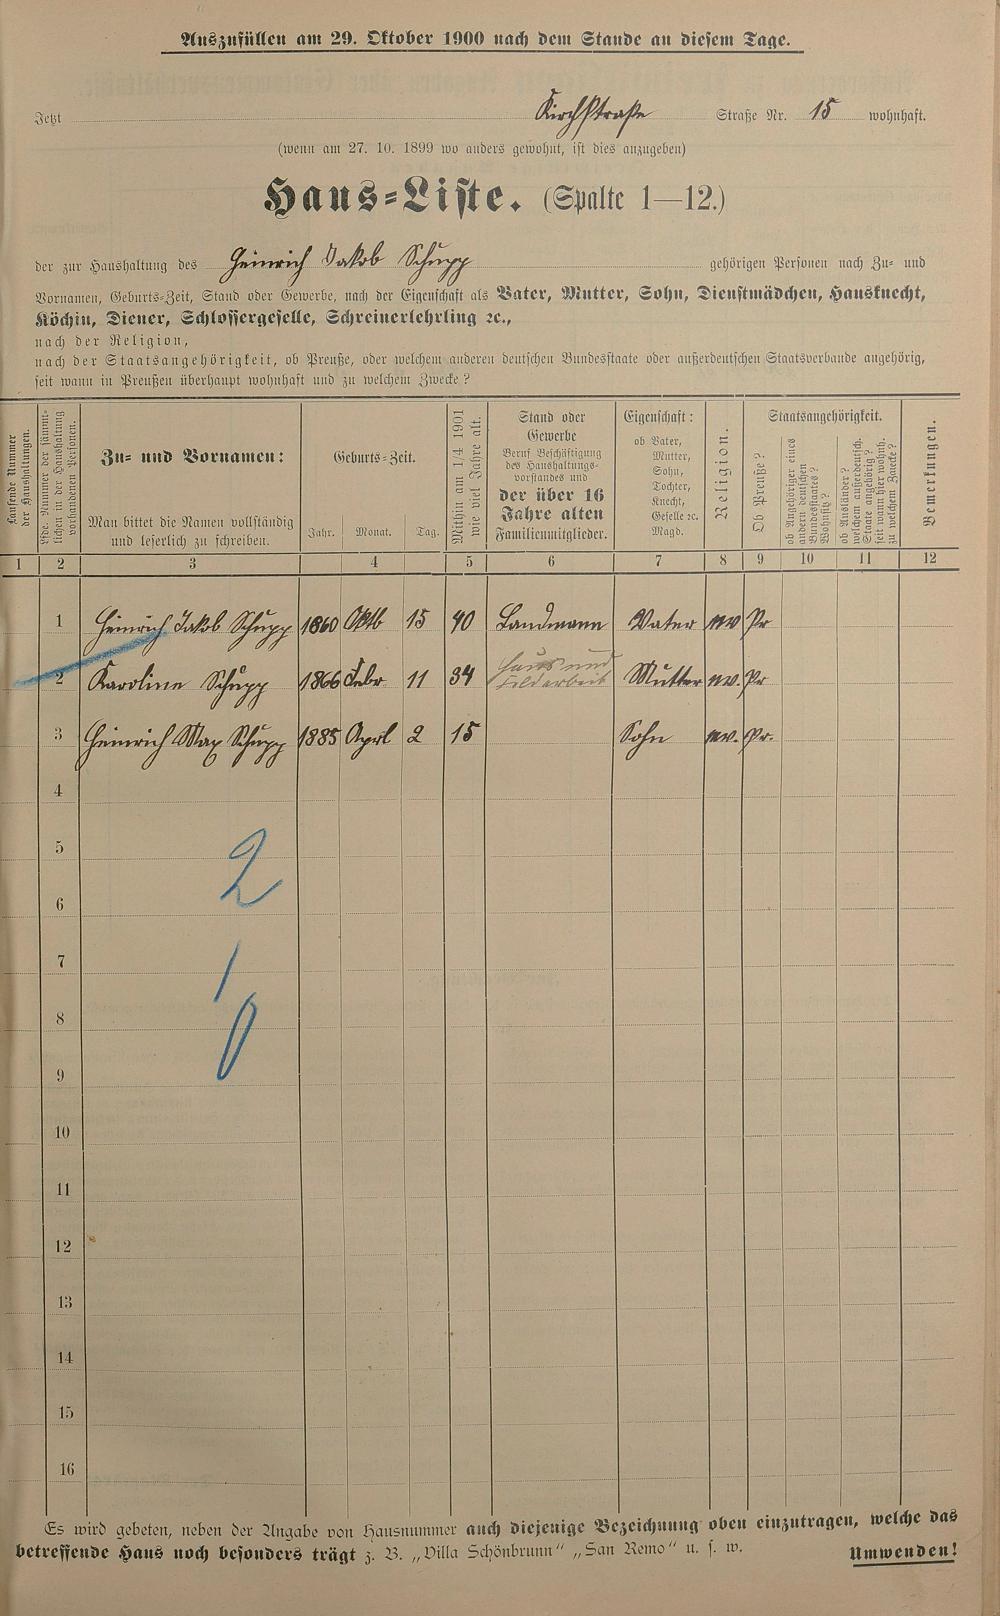 Auszufüllen am 29. Oktober 1900 nach dem Stande an diesem Tage.
Jetzt Kirchstraße Straße Nr. 15 wohnhaft.
(wenn am 27. 10. 1899 wo anders gewohnt, ist dies anzugeben)
Haus-Liste. (Spalte 1—12.)
der zur Haushaltung des Heinrich Jakob Schupp gehörigen Personen nach Zu- und
Vornamen, Geburts-Zeit, Stand oder Gewerbe, nach der Eigenschaft als Vater, Mutter, Sohn, Dienstmädchen, Hausknecht,
Köchin, Diener, Schlossergeselle, Schreinerlehrling ꝛc.,
nach der Religion,
nach der Staatsangehörigkeit, ob Preuße, oder welchem anderen deutschen Bundesstaate oder außerdeutschen Staatsverbande angehörig,
seit wann in Preußen überhaupt wohnhaft und zu welchem Zwecke?
Laufende Nummer
der Haushaltungen.
Lfde. Nummer der sämmt-
lichen in der Haushaltung
vorhandenen Personen.
Zu- und Vornamen:
Man bittet die Namen vollständig
und leserlich zu schreiben.
Geburts-Zeit.
Jahr. Monat. Tag.
Mithin am 1/4 1901
wie viel Jahre alt.
Stand oder
Gewerbe
Beruf Beschäftigung
des Haushaltungs-
vorstandes und
der über 16
Jahre alten
Familienmitglieder.
Eigenschaft:
ob Vater,
Mutter,
Sohn,
Tochter,
Knecht,
Geselle ꝛc.
Magd.
Religion.
Staatsangehörigkeit.
Ob Preuße?
ob Angehöriger eines
andern deutschen
Bundesstaates?
Wohnsitz?
ob Ausländer?
welchem außerdeutsch.
Staate angehörig?
seit wann hier wohnh.
zu welchem Zwecke?
Bemerkungen.
1 2 3 4 5 6 7 8 9 10 11 12
1 Heinrich Jakob Schupp 1860 Oktb 15 40 Landmann Vater ev Pr
2 Karoline Schupp 1866 Febr 11 34 Haus und Feldarbeit Mutter ev. Pr
3 Heinrich Max Schupp 1885 Aprl 2 15 Sohn ev. Pr.
4
5
2
6
7
1
8
0
9
10
11
12
13
14
15
16
Es wird gebeten, neben der Angabe von Hausnummer auch diejenige Bezeichnung oben einzutragen, welche das
betreffende Haus noch besonders trägt z. B. „Villa Schönbrunn“ „San Remo“ u. s. w.
Umwenden!